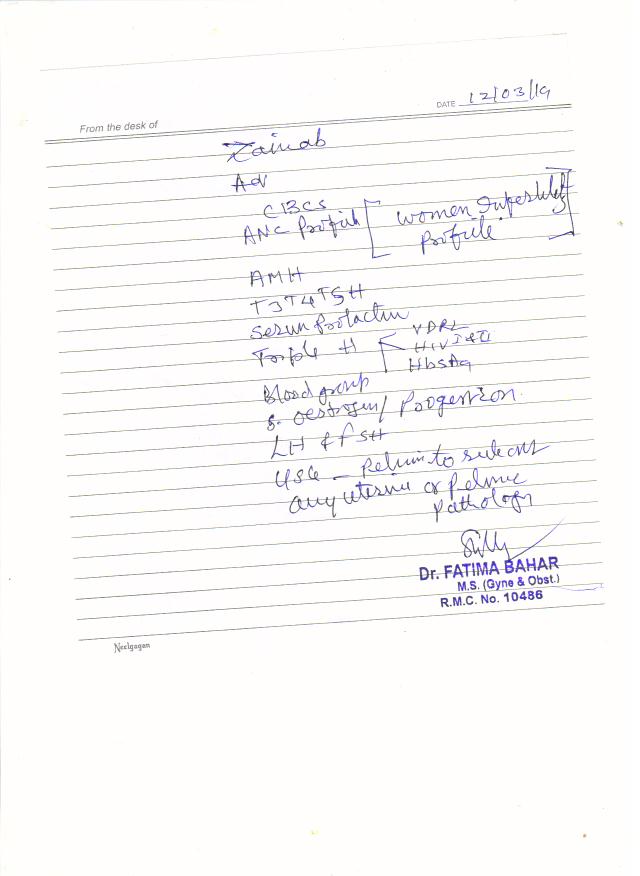 DATE 12/03/19
From the desk of
Zainab
Adv
CBCS
ANC Profile [ Women Infertility
Profile ]
AMH
T3 T4 TSH
Serum Prolactin
Triple H
VDRL
HIV I & II
HbsAg
Blood group
S. oestrogen / Progestron
LH & FSH
USG – Pelvis to rule out
any uterine or pelvic
pathology
Dr. FATIMA BAHAR
M.S. (Gyne & Obst.)
R.M.C. No. 10486
Neelgagan